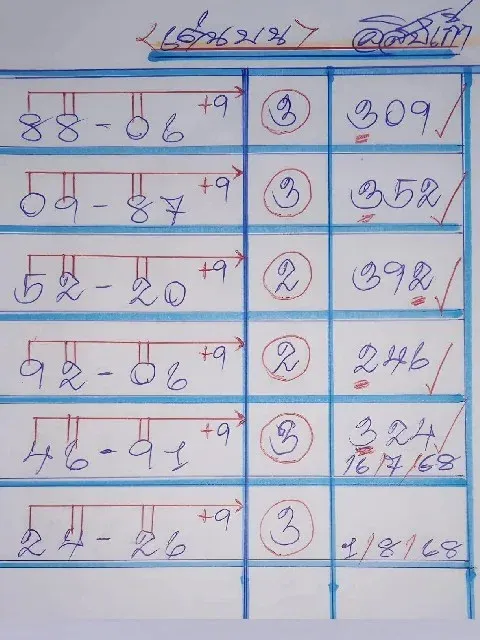 เด่นบน
88-06 +9 3 309
09-87 +9 3 352
52-20 +9 2 392
92-06 +9 2 246
46-91 +9 3 324
16/7/68
24-26 +9 3 1/8/68